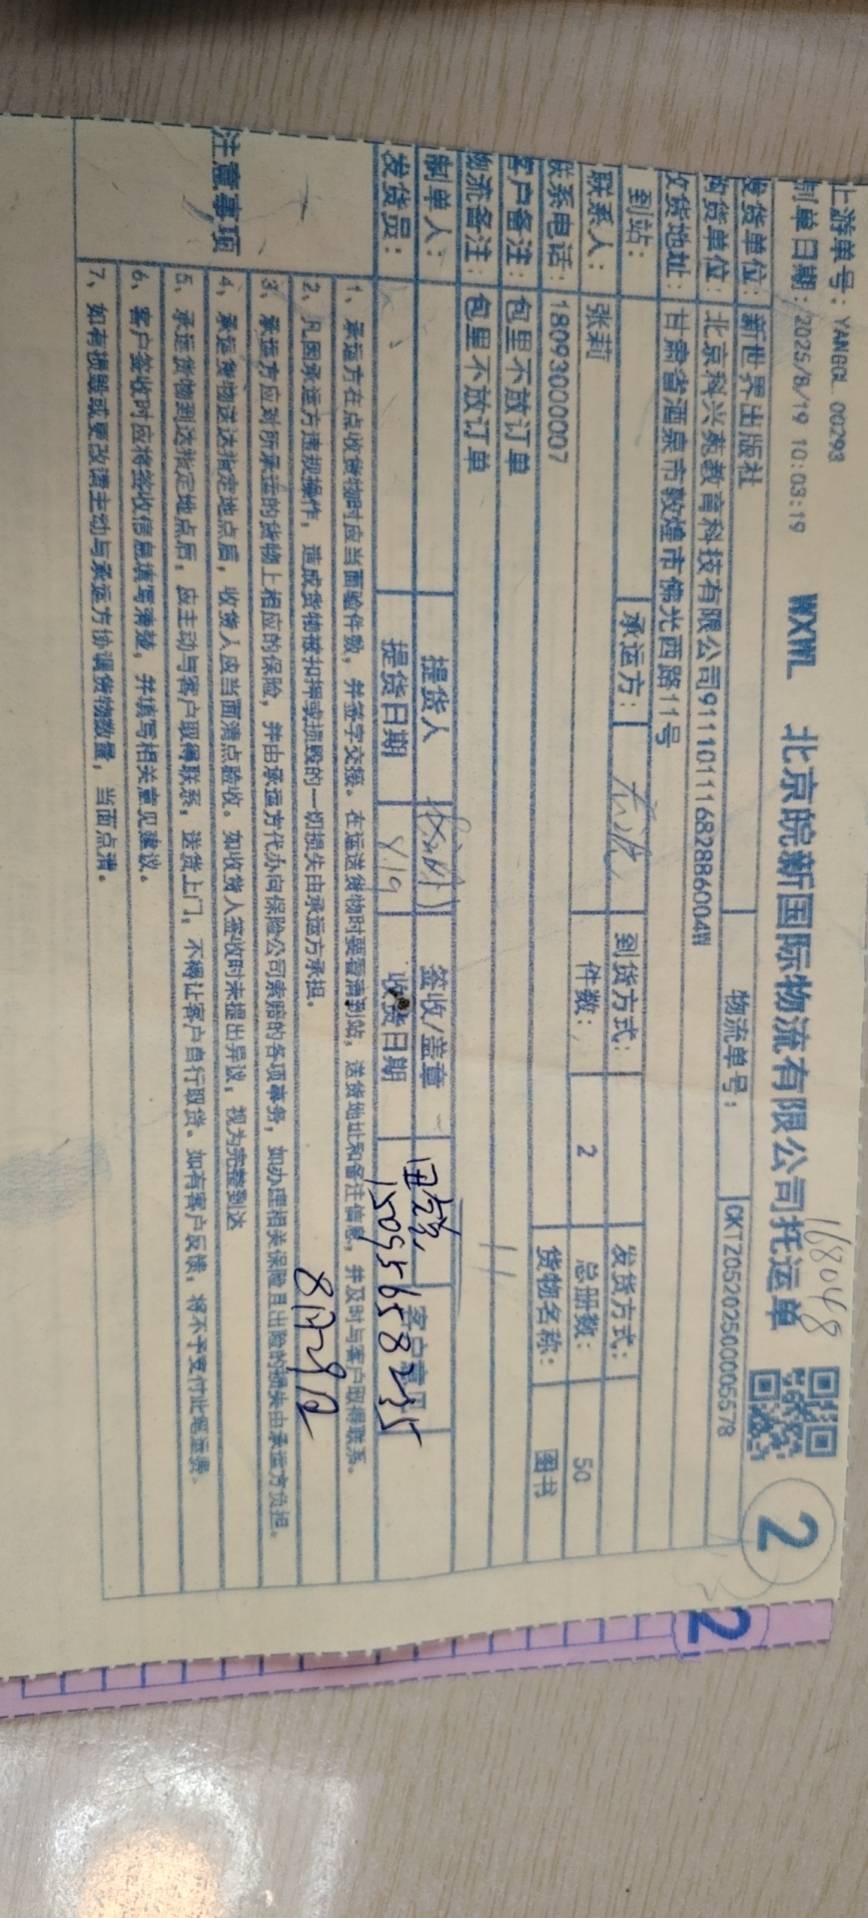 上游单号：YANGGL 00293
168048
制单日期：2025/8/19 10:03:19 WXWL 北京皖新国际物流有限公司托运单 2
发货单位：新世界出版社 物流单号：CKTZ05202500005578
购货单位：北京科兴苑教育科技有限公司91110111682886004W
收货地址：甘肃省酒泉市敦煌市佛光西路11号
到站： 承运方： 到货方式： 发货方式：
联系人：张莉 件数： 2 总册数： 50
联系电话：18093000007 货物名称： 图书
客户备注：包里不放订单
物流备注：包里不放订单
制单人： 提货人 签收/盖章 客户意见
发货员： 提货日期 8.19 收货日期 15095658235
8月29日
注意事项
1、承运方在点收货物时应当面验件数，并签字交接。在运送货物时要看清到站，送货地址和备注信息，并及时与客户取得联系。
2、凡因承运方违规操作，造成货物被扣押或损毁的一切损失由承运方承担。
3、承运方应对所承运的货物上相应的保险，并由承运方代办向保险公司索赔的各项事务，如办理相关保险且出险的损失由承运方负担。
4、承运货物送达指定地点后，收货人应当面清点验收。如收货人签收时未提出异议，视为完整到达
5、承运货物到达指定地点后，应主动与客户取得联系，送货上门，不得让客户自行取货。如有客户反馈，将不予支付此笔运费。
6、客户签收时应将签收信息填写清楚，并填写相关意见建议。
7、如有损毁或更改请主动与承运方协调货物数量，当面点清。
2